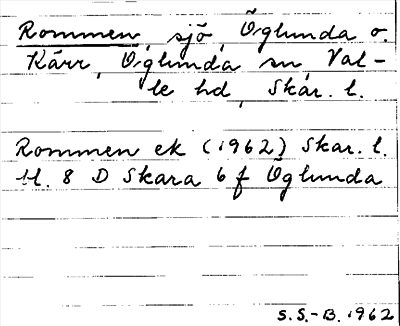 Rommen, sjö, Öglunda o.
Kärr, Öglunda sn, Val-
le hd, Skar. l.
Rommen ek (1962) Skar. l.
bl. 8 D Skara 6 f Öglunda
S.S.-B. 1962